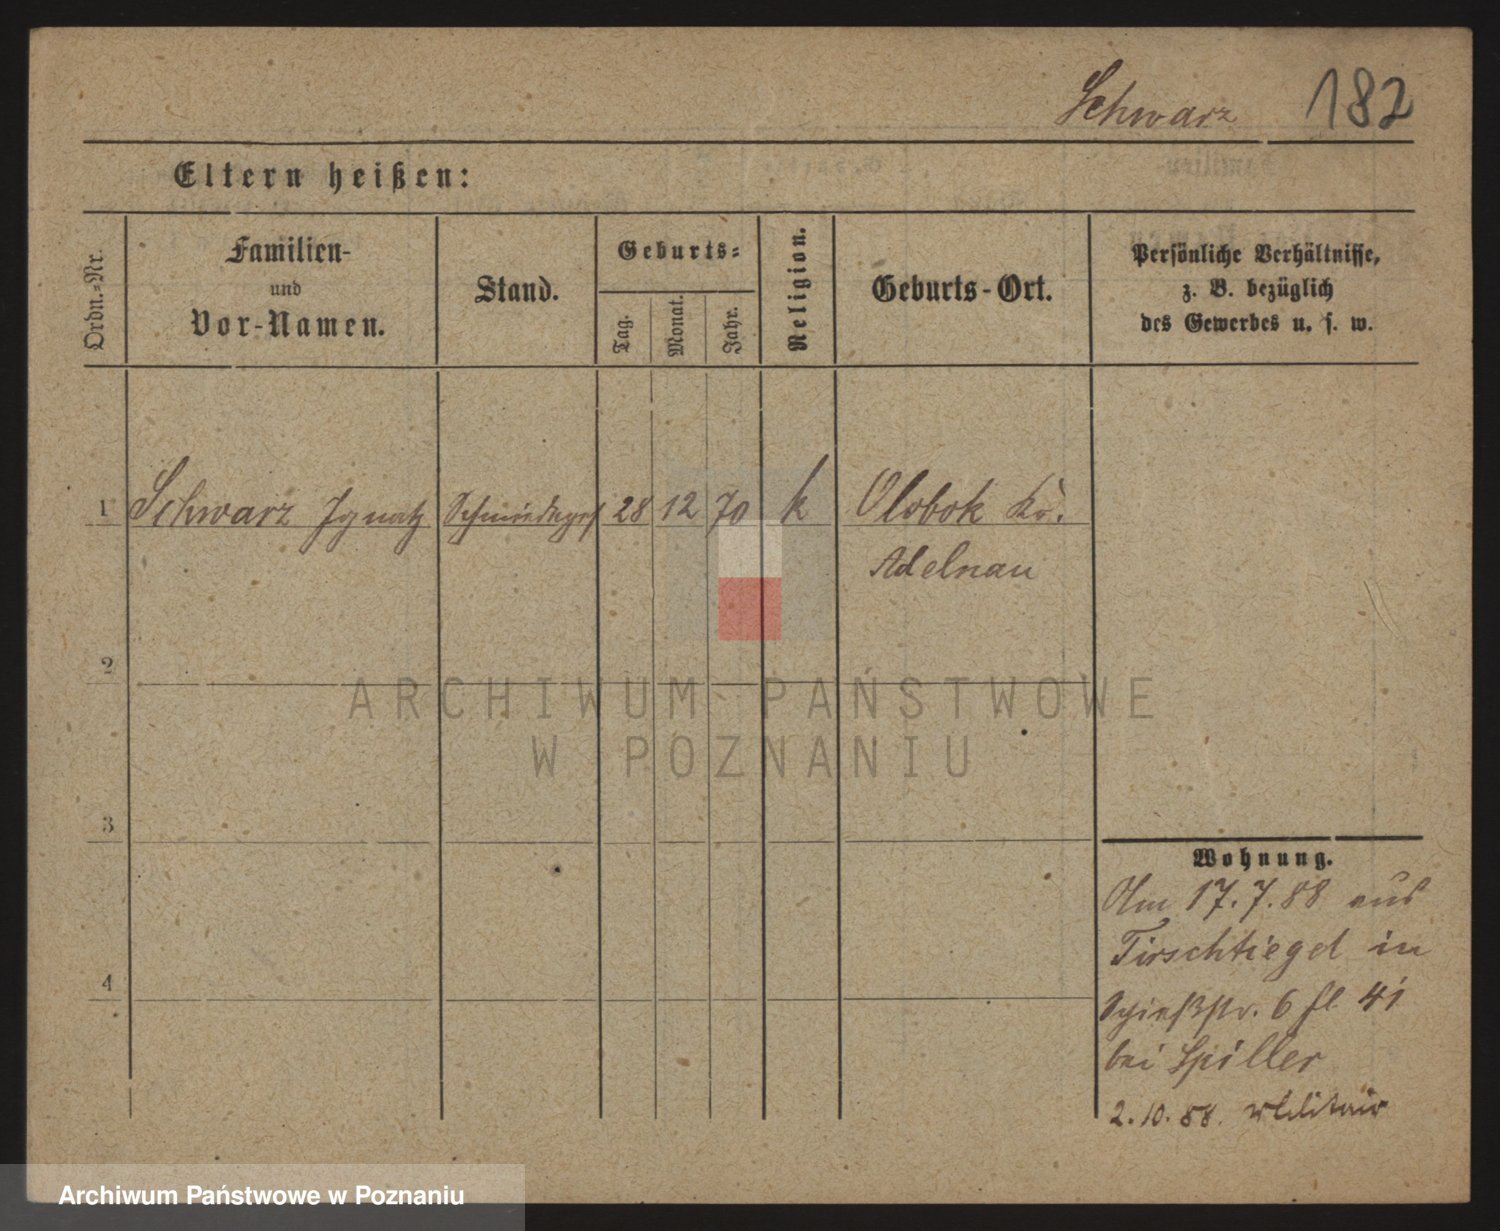 Schwarz 182
Eltern heißen:
Ordn.-Nr.
Familien-
und
Vor-Namen.
Stand.
Geburts-
Tag.
Monat.
Jahr.
Religion.
Geburts-Ort.
Persönliche Verhältnisse,
z. B. bezüglich
des Gewerbes u. s. w.
1 Schwarz Ignatz Schmiedeges 28 12 70 k Olobok Kr.
Adelnau
2
3
4
Wohnung.
Am 17.7.88 aus
Tirschtiegel in
Schießstr. 6 fl 41
bei Spiller
2.10.88.
ARCHIWUM PAŃSTWOWE
W POZNANIU
Archiwum Państwowe w Poznaniu